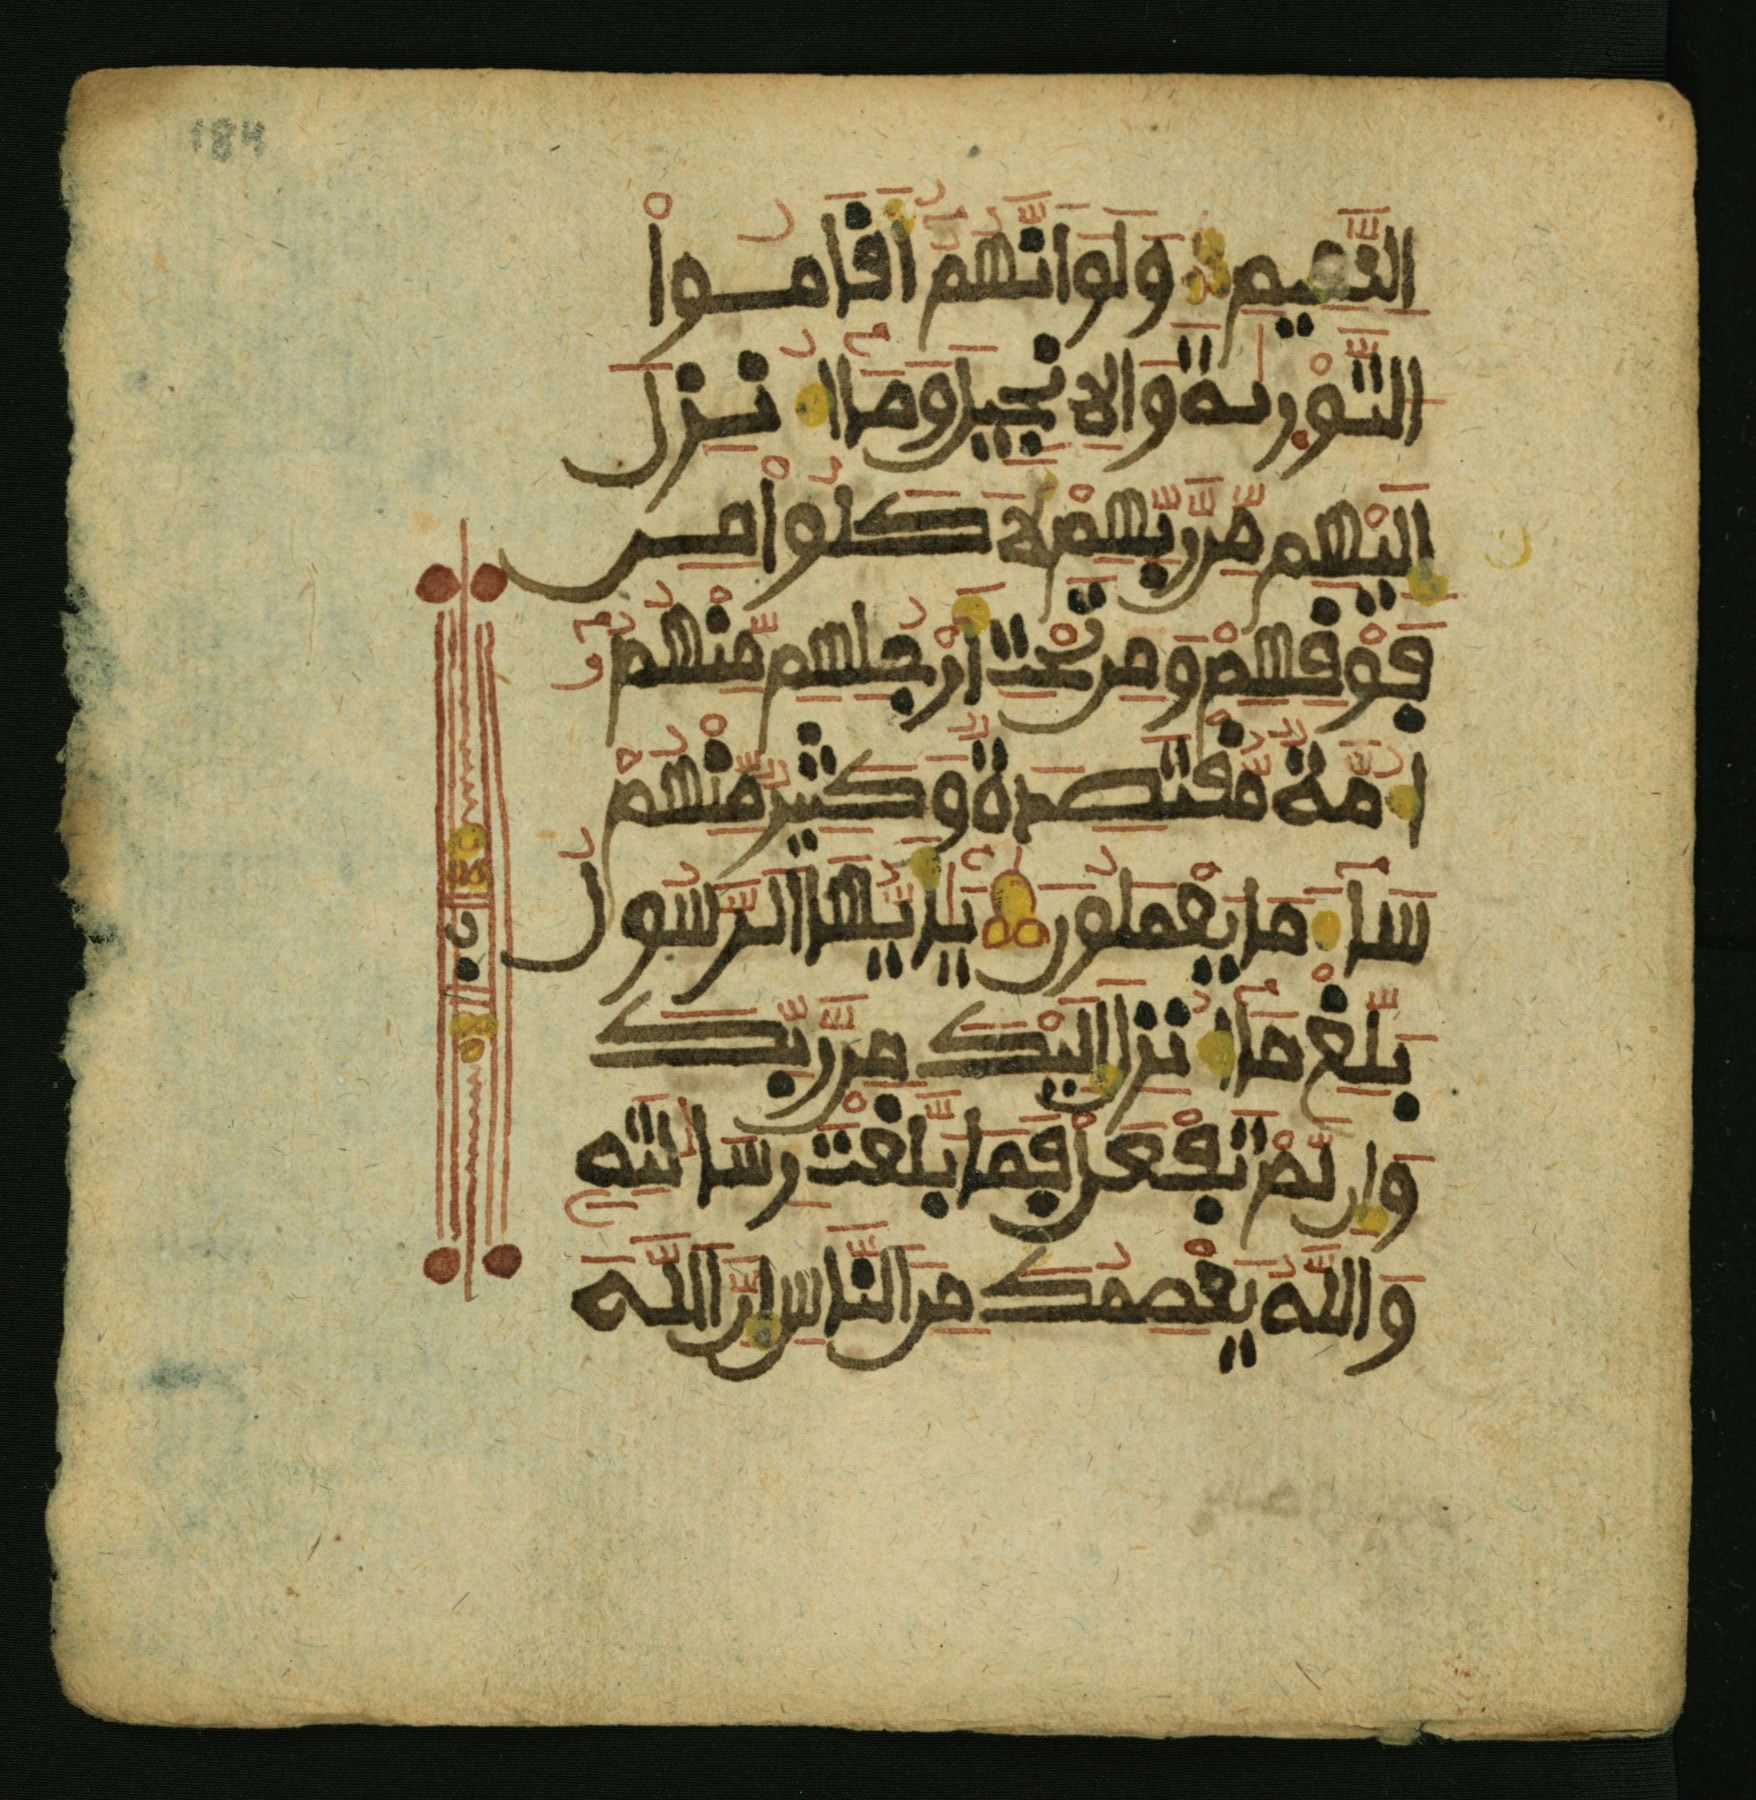 184
النَّعِيمِ وَلَوَ اَنَّهُمُۥٓ أَقَامُواْ
التَّوْرٜىٰةَ وَالِانجِيلَ وَمَآ أُنزِلَ
إِلَيْهِم مِّن رَّبِّهِمْ لَأَكَلُواْ مِن
فَوْقِهِمْ وَمِن تَحْتِ أَرْجُلِهِم مِّنْهُمُۥٓ
أُمَّةٌ مُّقْتَصِدَةٌ وَكَثِيرٌ مِّنْهُمْ
سَآءَ مَا يَعْمَلُونَ يَٰٓأَيُّهَا الرَّسُولُ
بَلِّغْ مَآ أُنزِلَ إِلَيْكَ مِن رَّبِّكَ
وَإِن لَّمْ تَفْعَلْ فَمَا بَلَّغْتَ رِسَٰلَٰتِهِۦ
وَاللَّهُ يَعْصِمُكَ مِنَ النَّاسِ إِنَّ اللَّهَ